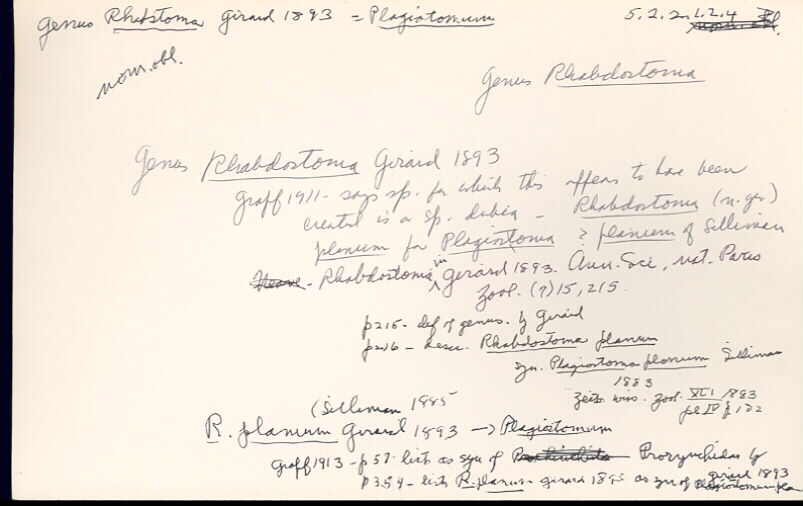 Genus Rhabdstoma Girard 1893 = Plagiotomum 5.2.2.1.2.4
nom. obl.
Genus Rhabdostoma
Genus Rhabdostoma Girard 1893
Graff 1911 - says sp. for which this appears to have been
created is a sp. dubia - Rhabdostoma (n. gen)
planum for Plagiostoma ? planum of Silliman
Rhabdostoma in Girard 1893. Ann. Sci. nat. Paris
Zool. (7) 15, 215.
p215 - def of genus. by Girard
p216 - descr. Rhabdostoma planum
syn. Plagiostoma planum Silliman
1883
Zeits. wiss. Zool. XLI 1883
pl IV f 122
(Silliman 1885
R. planum Girard 1893 -> Plagiostomum
Graff 1913 - p 57 - lists as syn of Prorynchidae by
Girard 1893
p354 - lists R. planum Girard 1893 as syn of